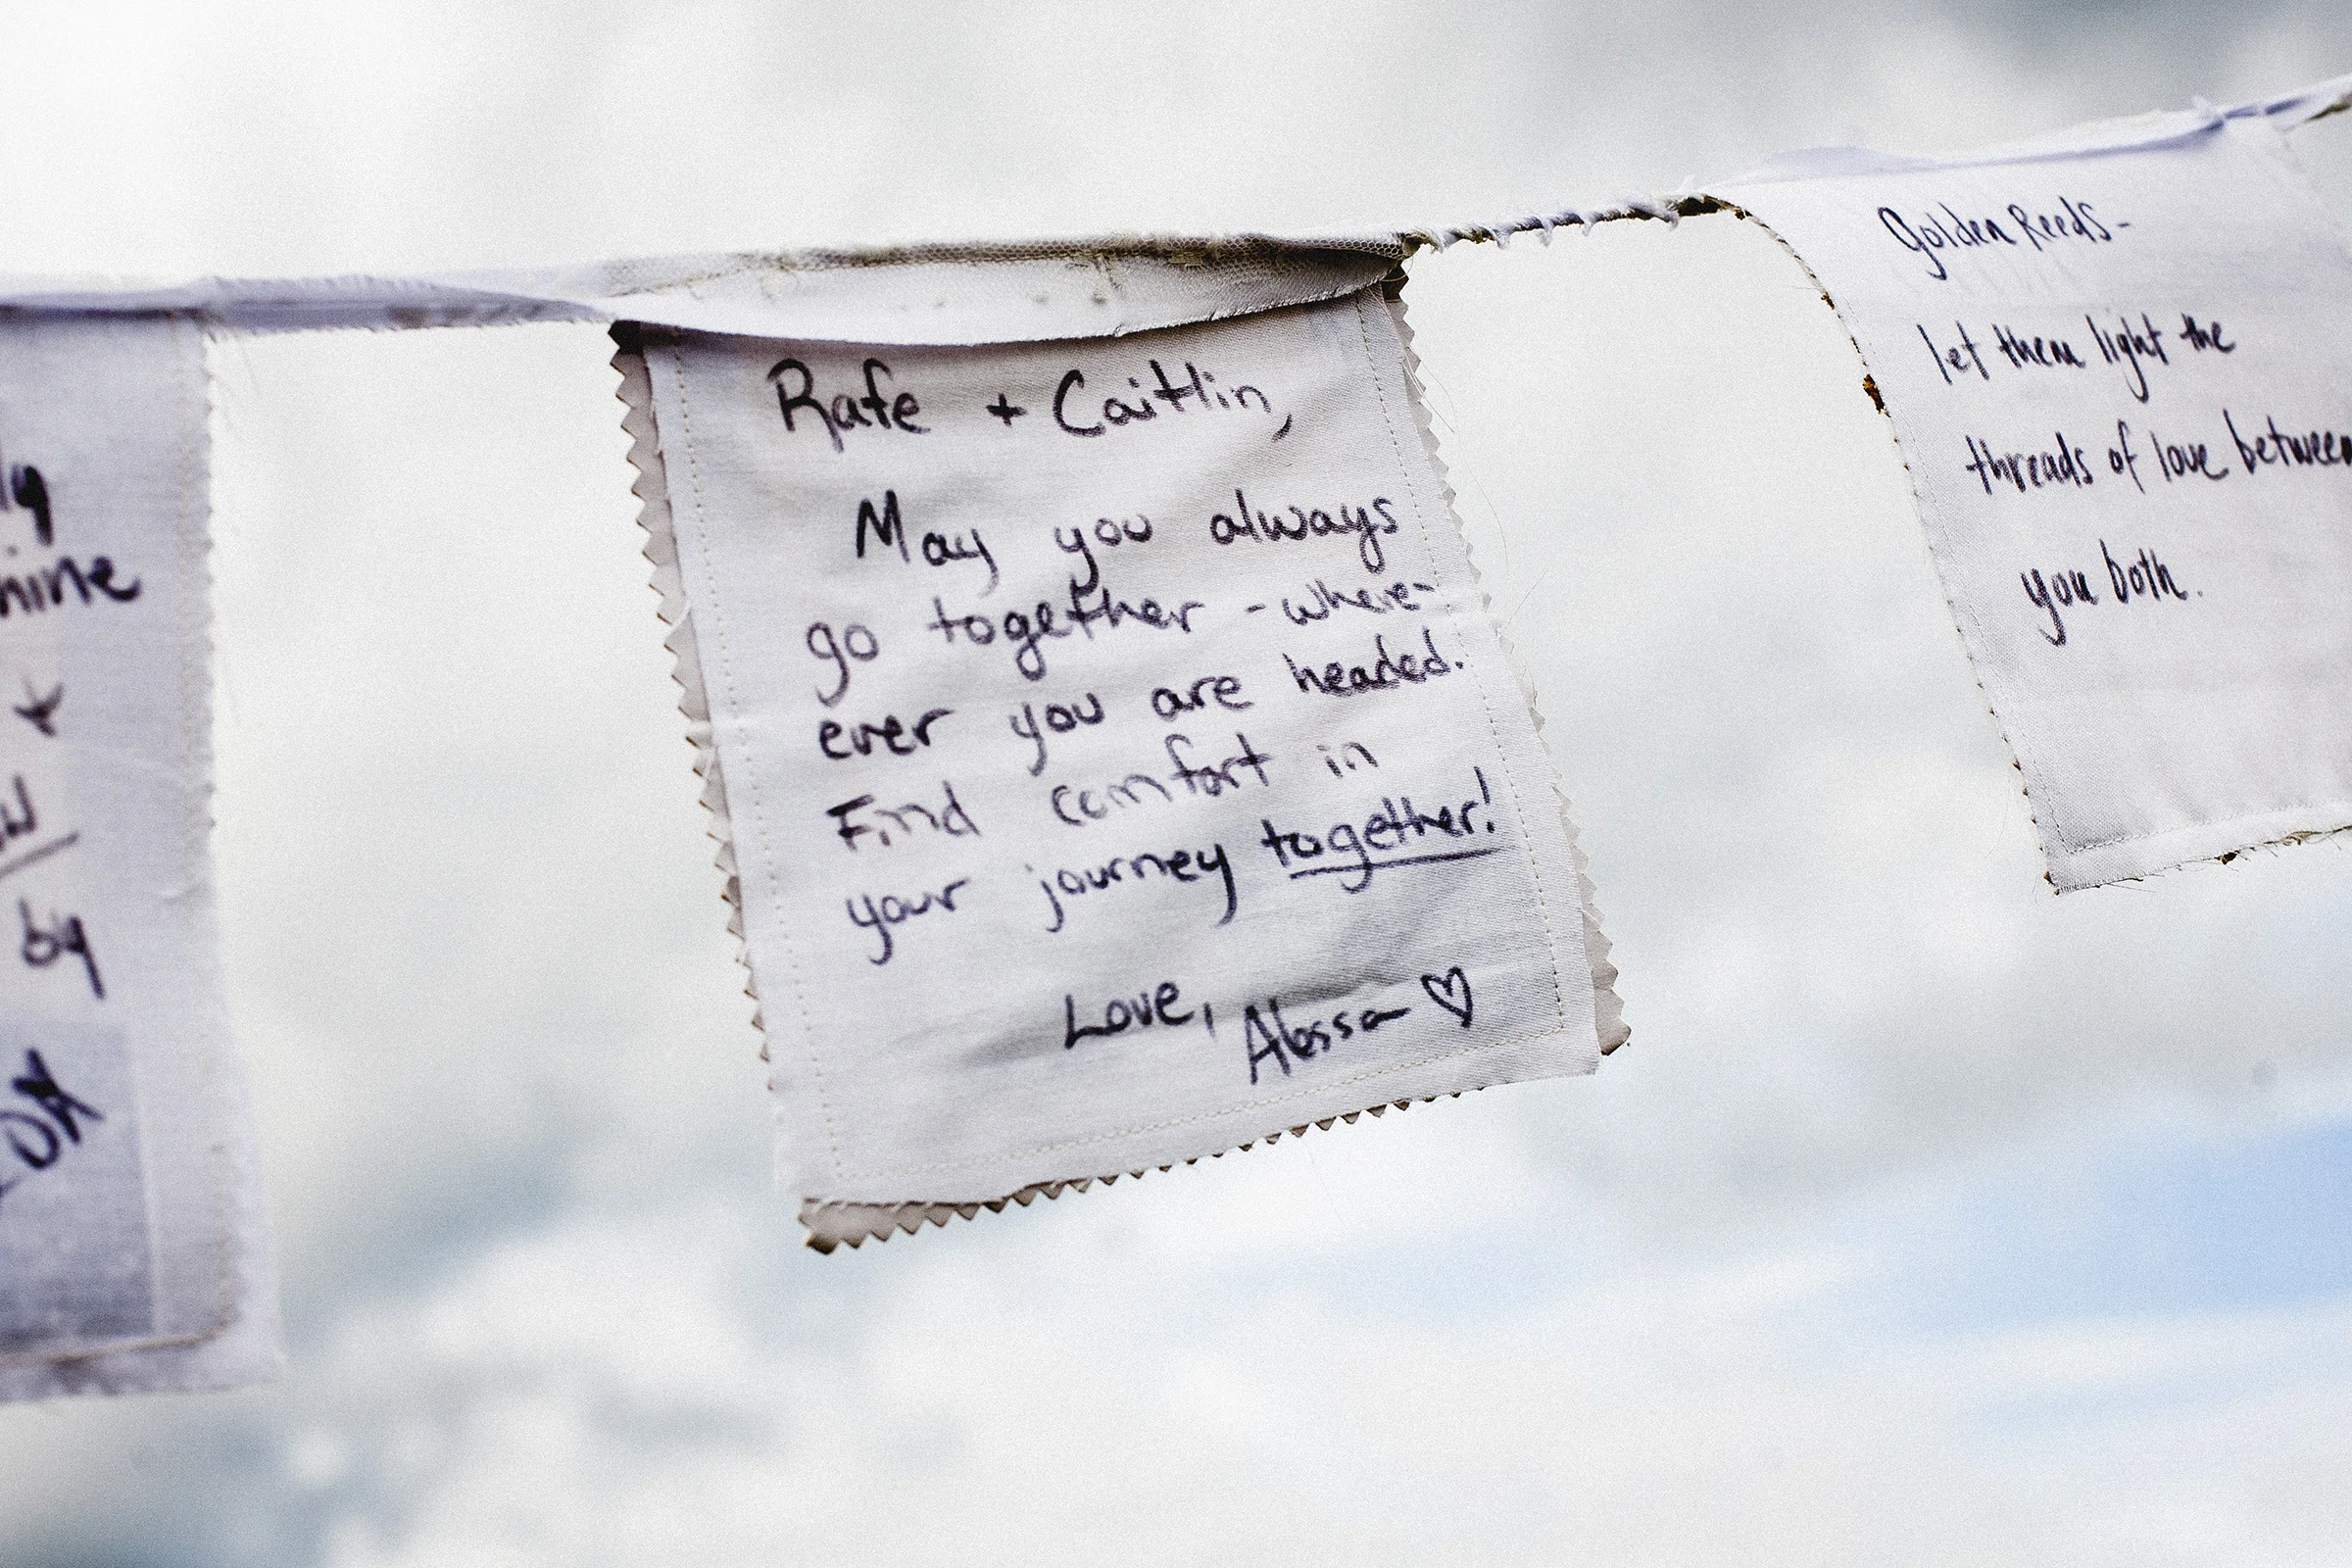 by
Rafe + Caitlin,
May you always
go together - where-
ever you are headed.
Find comfort in
your journey together!
Love, Alyssa ♡
Golden Reeds-
let them light the
threads of love between
you both.